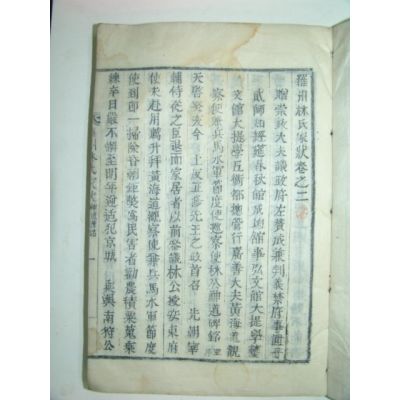 羅州林氏家狀卷之二
贈崇政大夫議政府左贊成兼判義禁府事世子
貳師知經筵春秋館成均館事弘文館大提學藝
文館大提學五衛都摠管行嘉善大夫黃海道觀
察使兼兵馬水軍節度使巡察使林公神道碑銘
天啓癸亥今上反正慕先王之政首召先朝宰
輔侍從之臣退而家居者以前參議林公拜安東府
使未赴用薦升拜黃海道觀察使兼兵馬水軍節度
使到即一掃除煩苛寬民害者勸農積粟蒐乘
練卒日雖不給至明年适犯京城輿南狩公